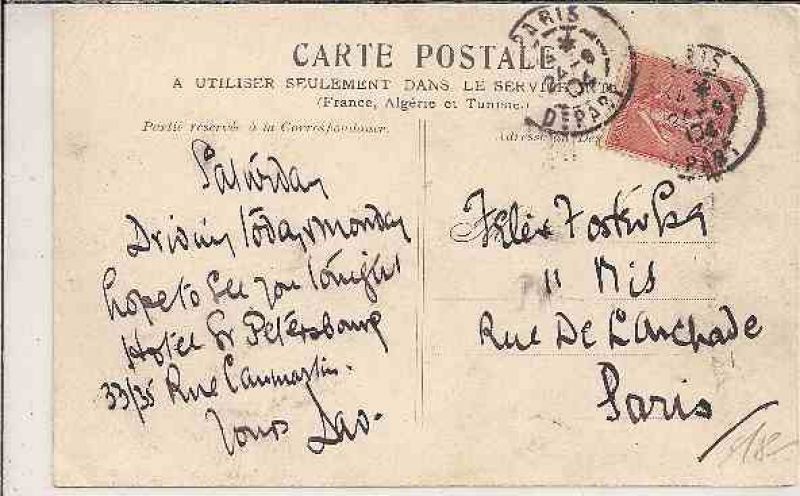 CARTE POSTALE
A UTILISER SEULEMENT DANS LE SERVICE
(France, Algérie et Tunisie.)
Partie réservée à la Correspondance.
Adresse du
PARIS
DEPART
Saturday
Driving today & monday
hope to see you tonight
Hotel St Petersbourg
33/35 Rue Caumartin.
Yours
Felix Foster Esq
11 bis
Rue De L'Archade
Paris